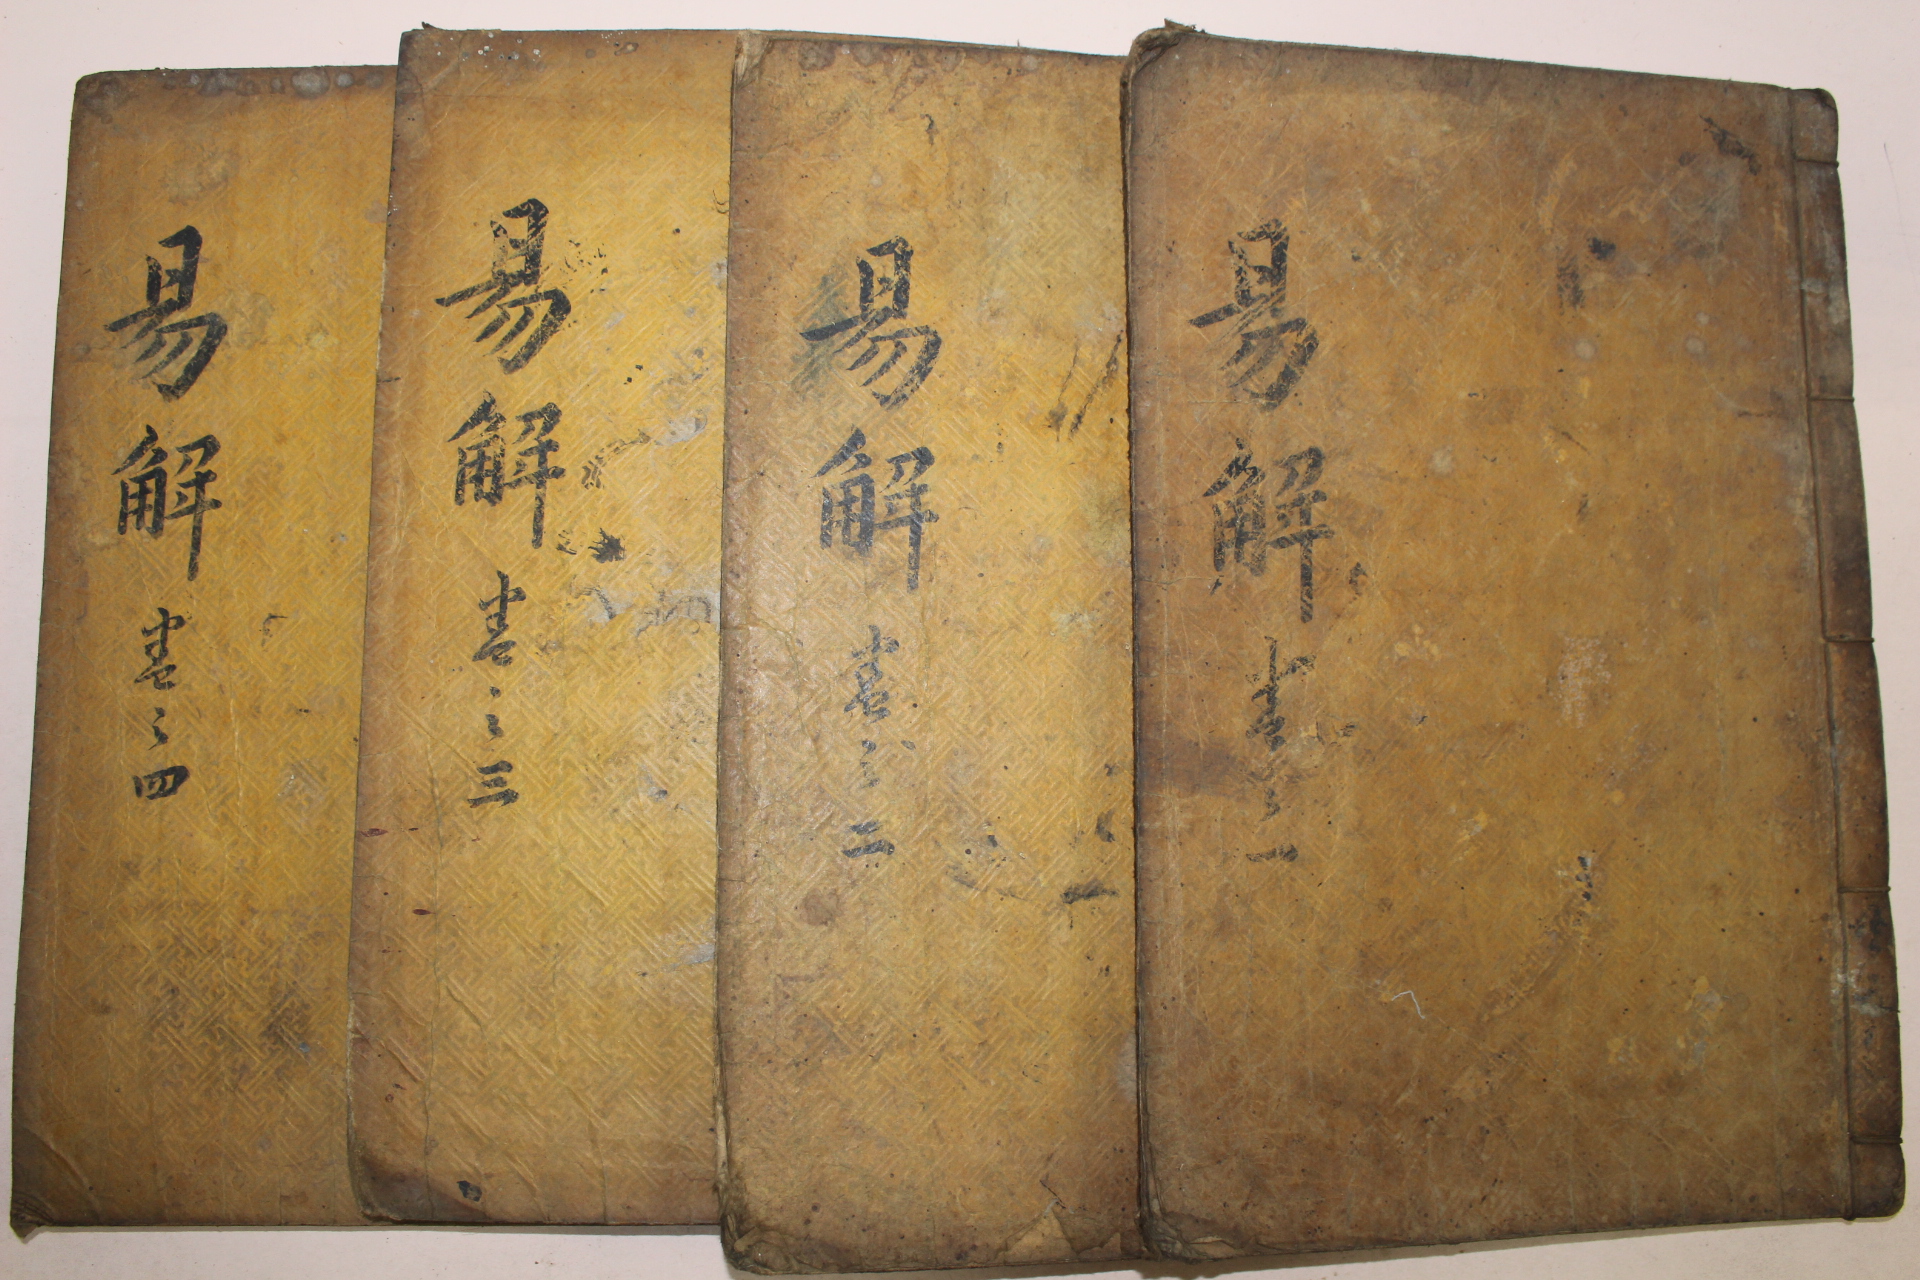 易解 卷之一
易解 卷之二
易解 卷之三
易解 卷之四